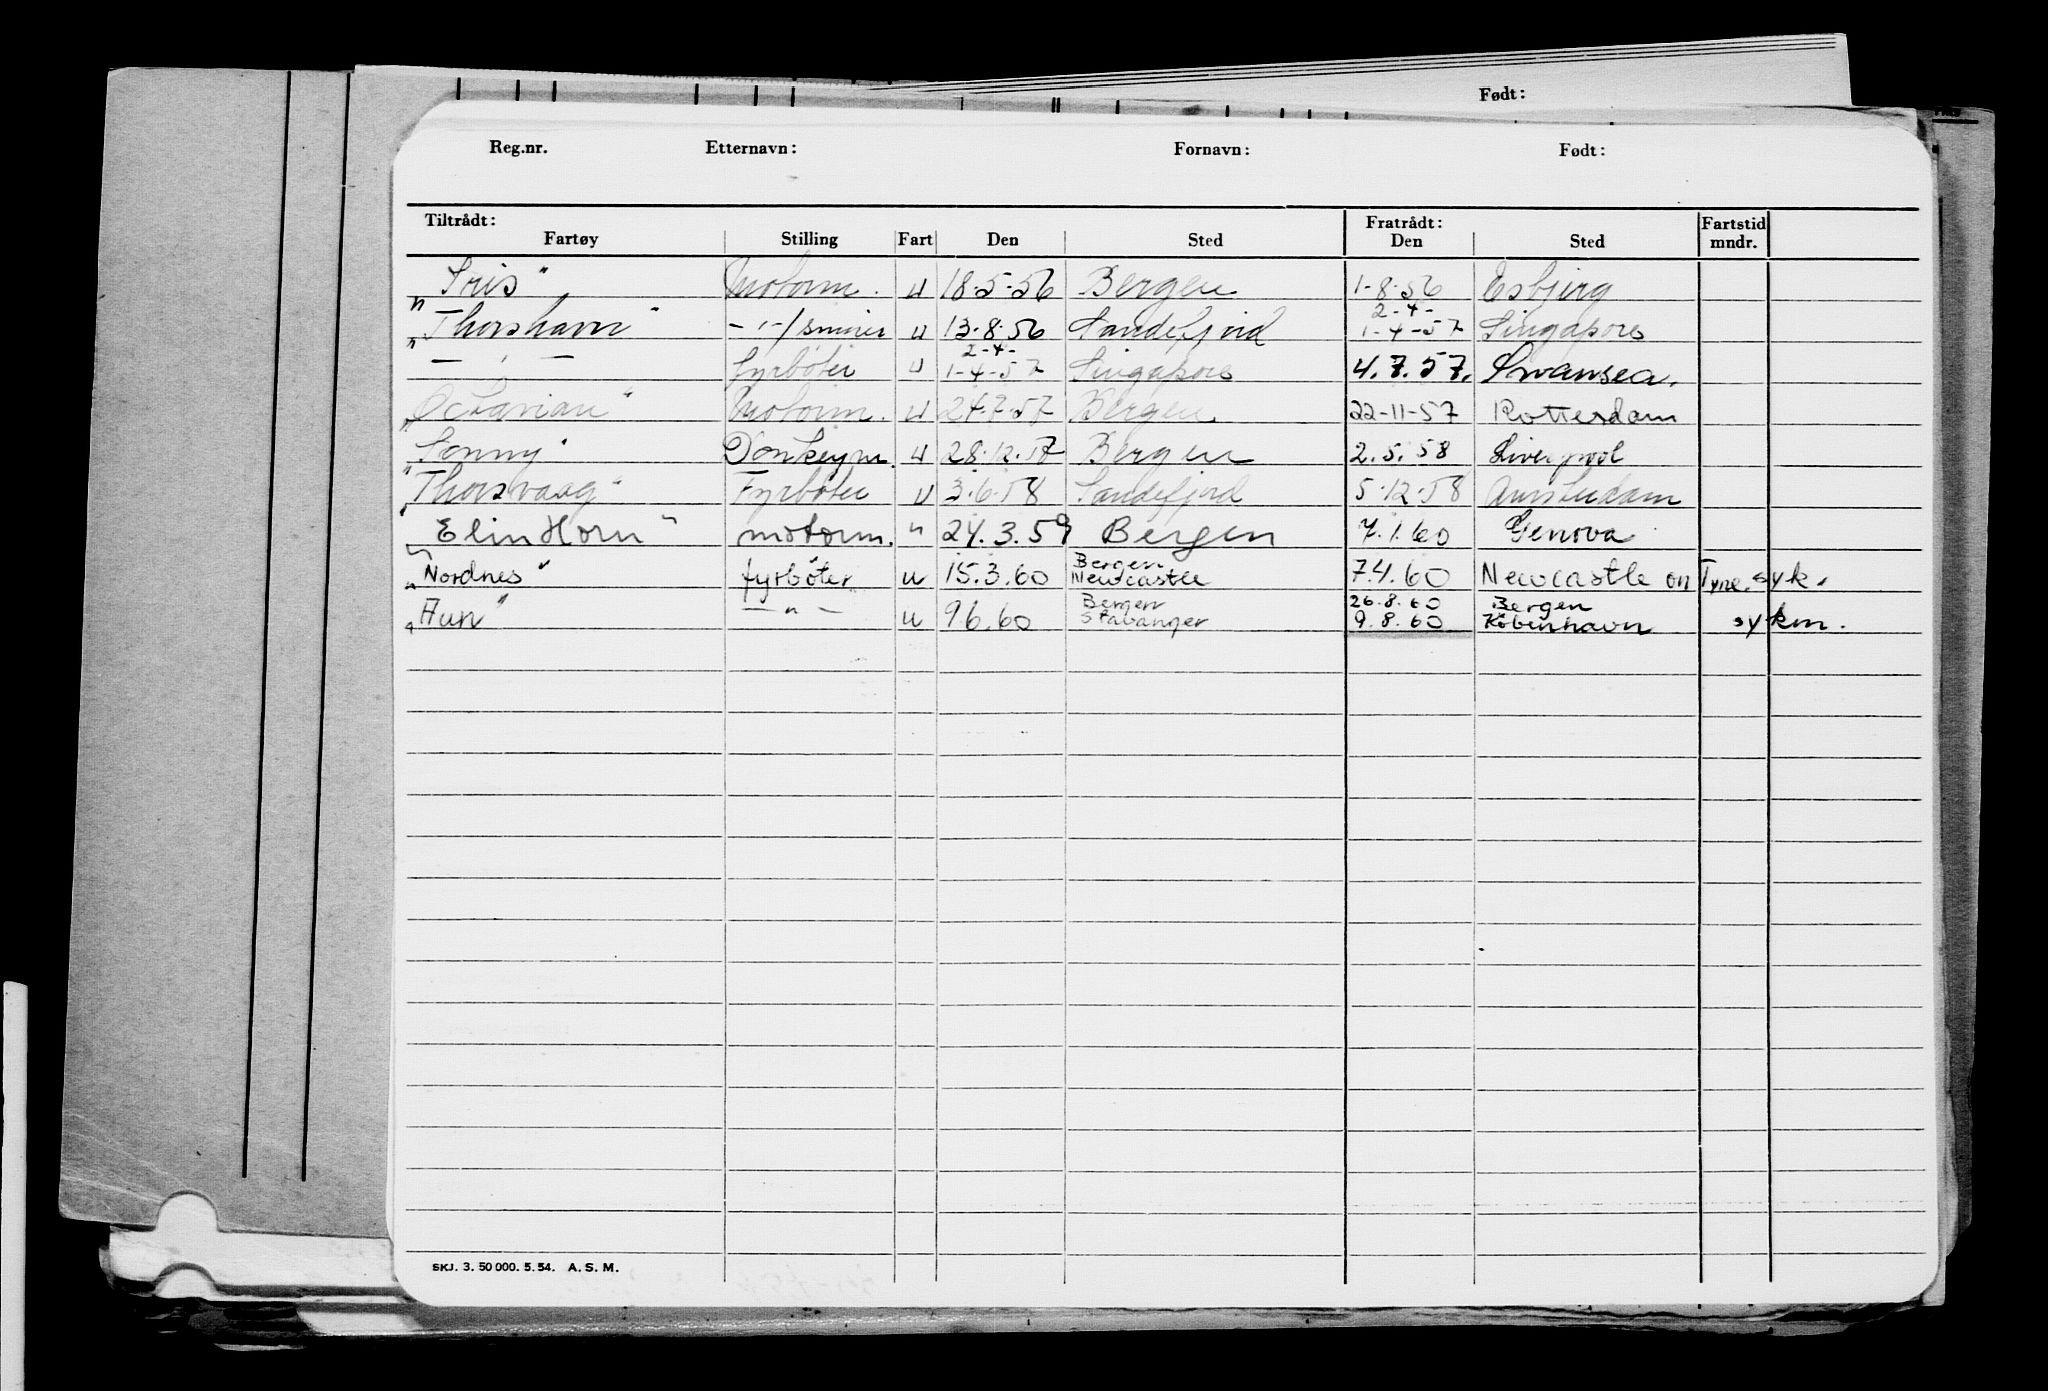 Født:
Reg.nr. Etternavn: Fornavn: Født:
Tiltrådt: Fratrådt: Fartstid
Fartøy Stilling Fart Den Sted Den Sted mndr.
"Iris" Motorm. u 18-5-56 Bergen 1-8-56 Esbjerg
2-4-
"Thorshavn" -"-/smører u 13-8-56 Sandefjord 1-4-57 Singapore
2-4-
— " — fyrbøter u 1-4-57 Singapore 4.7.57. Swansea.
"Octavian" Motorm. u 24-7-57 Bergen 22-11-57 Rotterdam
"Sonny" Donkeym. u 28-12-57 Bergen 2.5.58 Liverpool
"Thorsvaag" Fyrbøter u 3-6-58 Sandefjord 5-12-58 Amsterdam
"Elin Horn" motorm. " 24.3.59 Bergen 7.1.60 Genova
Bergen
"Nordnes" fyrbøter u 15.3.60 Newcastle 7.4.60 Newcastle on Tyne. syk.
Bergen 26.8.60 Bergen
"Aun" — " — u 9.6.60 Stavanger 9.8.60 København sykm.
SKJ. 3. 50 000. 5. 54. A. S. M.